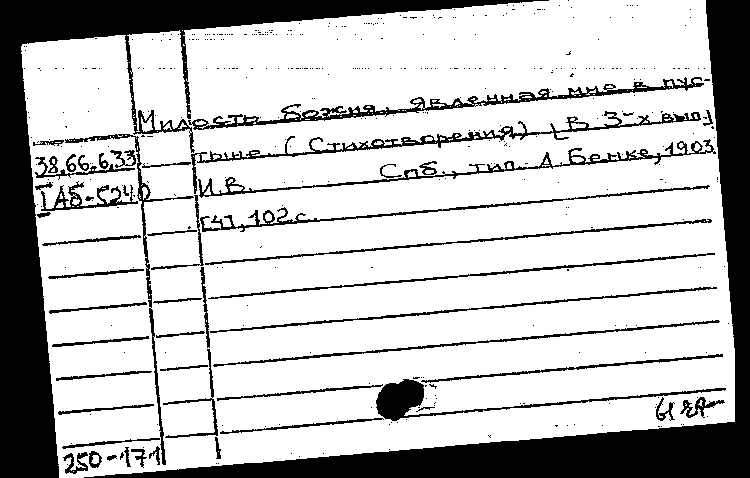 Милость Божия, явленная мне в пус-
38.66.6.33 тыне. (Стихотворения) [В 3-х вып.]
IАб-5240 И.В. Спб., тип. А. Бенке, 1903
[4], 102 с.
250-171